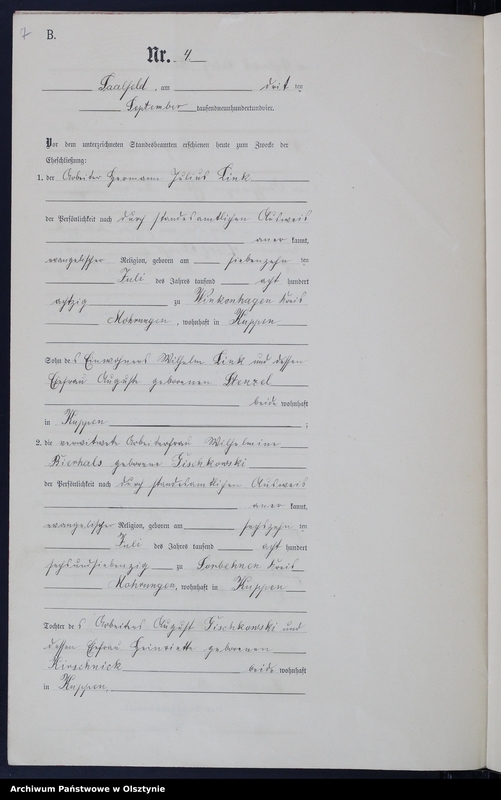 7 B.
Nr. 4
Saalfeld, am dritten
September tausendneunhundertundvier.
Vor dem unterzeichneten Standesbeamten erschienen heute zum Zwecke der
Eheschließung:
1. der Arbeiter Hermann Julius Link
der Persönlichkeit nach durch standesamtlichen Ausweis
anerkannt,
evangelischer Religion, geboren am siebenzehnten
Juli des Jahres tausend acht hundert
achtzig zu Winkenhagen Kreis
Mohrungen, wohnhaft in Kuppen
Sohn des Einwohners Wilhelm Link und dessen
Ehefrau Auguste geborenen Stenzel
beide wohnhaft
in Kuppen;
2. die verwitwete Arbeiterfrau Wilhelmine
Bierhals geborene Zischkowski
der Persönlichkeit nach durch standesamtlichen Ausweis
anerkannt,
evangelischer Religion, geboren am sechszehnten
Juli des Jahres tausend acht hundert
sechsundsiebenzig zu Sorbehnen Kreis
Mohrungen, wohnhaft in Kuppen
Tochter des Arbeiters August Zischkowski und
dessen Ehefrau Heinriette geborenen
Kirschnick beide wohnhaft
in Kuppen,
Archiwum Państwowe w Olsztynie